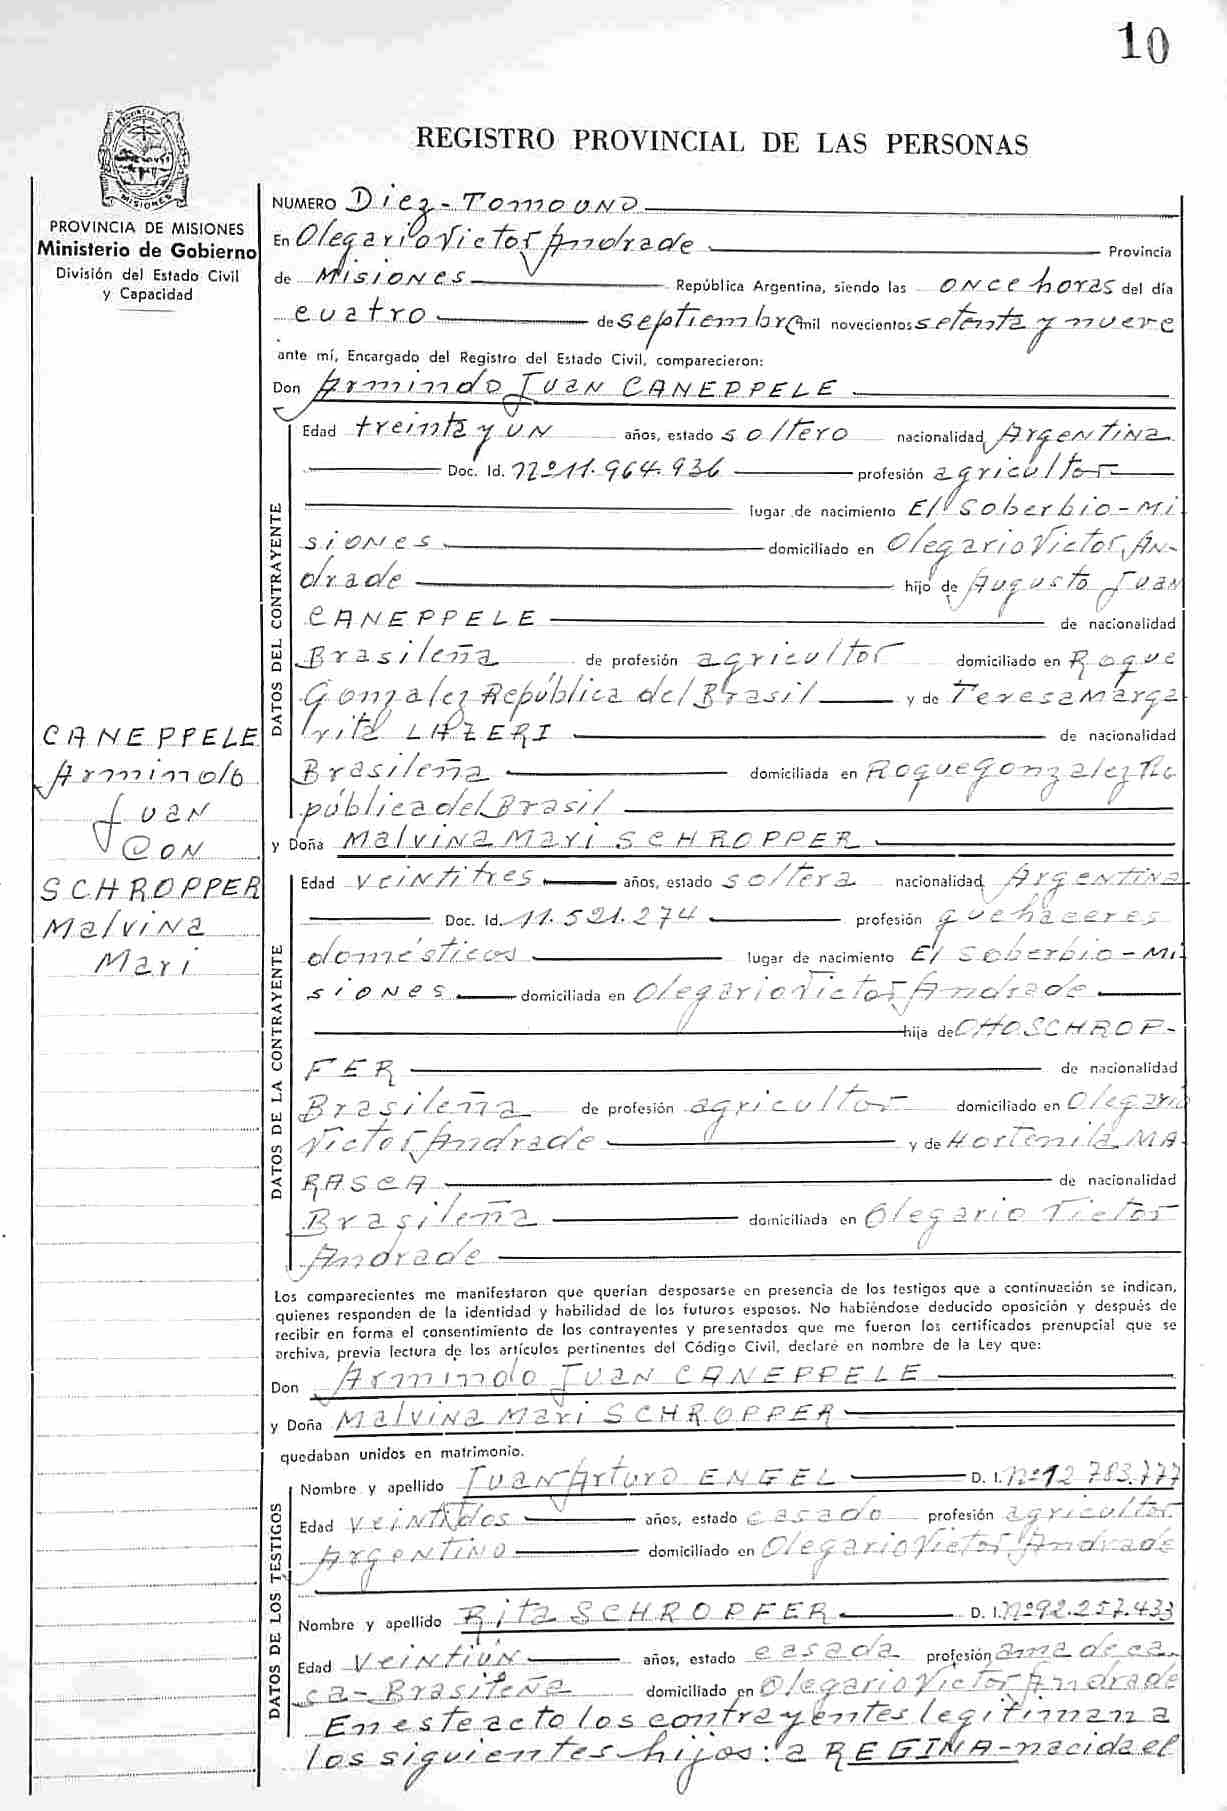 10
REGISTRO PROVINCIAL DE LAS PERSONAS
PROVINCIA DE MISIONES
Ministerio de Gobierno
División del Estado Civil
y Capacidad
NUMERO Diez - Tomo UNO
En Olegario Victor Andrade Provincia
de Misiones República Argentina, siendo las once horas del día
cuatro de septiembre mil novecientos setenta y nueve
ante mí, Encargado del Registro del Estado Civil, comparecieron:
Don Armindo Juan CANEPPELE
DATOS DEL CONTRAYENTE
Edad treinta y un años, estado soltero nacionalidad Argentina
Doc. Id. nº 11.964.936 profesión agricultor
lugar de nacimiento El Soberbio - Mi
siones domiciliado en Olegario Victor An-
drade hijo de Augusto Juan
CANEPPELE de nacionalidad
Brasileña de profesión agricultor domiciliado en Roque
Gonzalez República del Brasil y de Teresa Marga
rita LAZERI de nacionalidad
Brasileña domiciliada en Roque Gonzalez Re
pública del Brasil
CANEPPELE
Armindo
Juan
Con
SCHROPPER
Malvina
Mari
y Doña Malvina Mari SCHROPPER
DATOS DE LA CONTRAYENTE
Edad veintitres años, estado soltera nacionalidad Argentina
Doc. Id. 11.521.274 profesión quehaceres
domésticos lugar de nacimiento El Soberbio - Mi
siones domiciliada en Olegario Victor Andrade
hija de Otto SCHROP-
FER de nacionalidad
Brasileña de profesión agricultor domiciliado en Olegario
Victor Andrade y de Hortenila MA
RASCA de nacionalidad
Brasileña domiciliada en Olegario Victor
Andrade
Los comparecientes me manifestaron que querían desposarse en presencia de los testigos que a continuación se indican,
quienes responden de la identidad y habilidad de los futuros esposos. No habiéndose deducido oposición y después de
recibir en forma el consentimiento de los contrayentes y presentados que me fueron los certificados prenupcial que se
archiva, previa lectura de los artículos pertinentes del Código Civil, declaré en nombre de la Ley que:
Don Armindo Juan CANEPPELE
y Doña Malvina Mari SCHROPPER
quedaban unidos en matrimonio.
DATOS DE LOS TESTIGOS
Nombre y apellido Juan Arturo ENGEL D. I. nº 12.783.777
Edad veintidos años, estado casado profesión agricultor
Argentino domiciliado en Olegario Victor Andrade
Nombre y apellido Rita SCHROPFER D. I. nº 92.257.433
Edad Veintiún años, estado casada profesión ama de ca
ca - Brasileña domiciliado en Olegario Victor Andrade
En este acto los contrayentes legitiman a
los siguientes hijos: a REGINA - nacida el